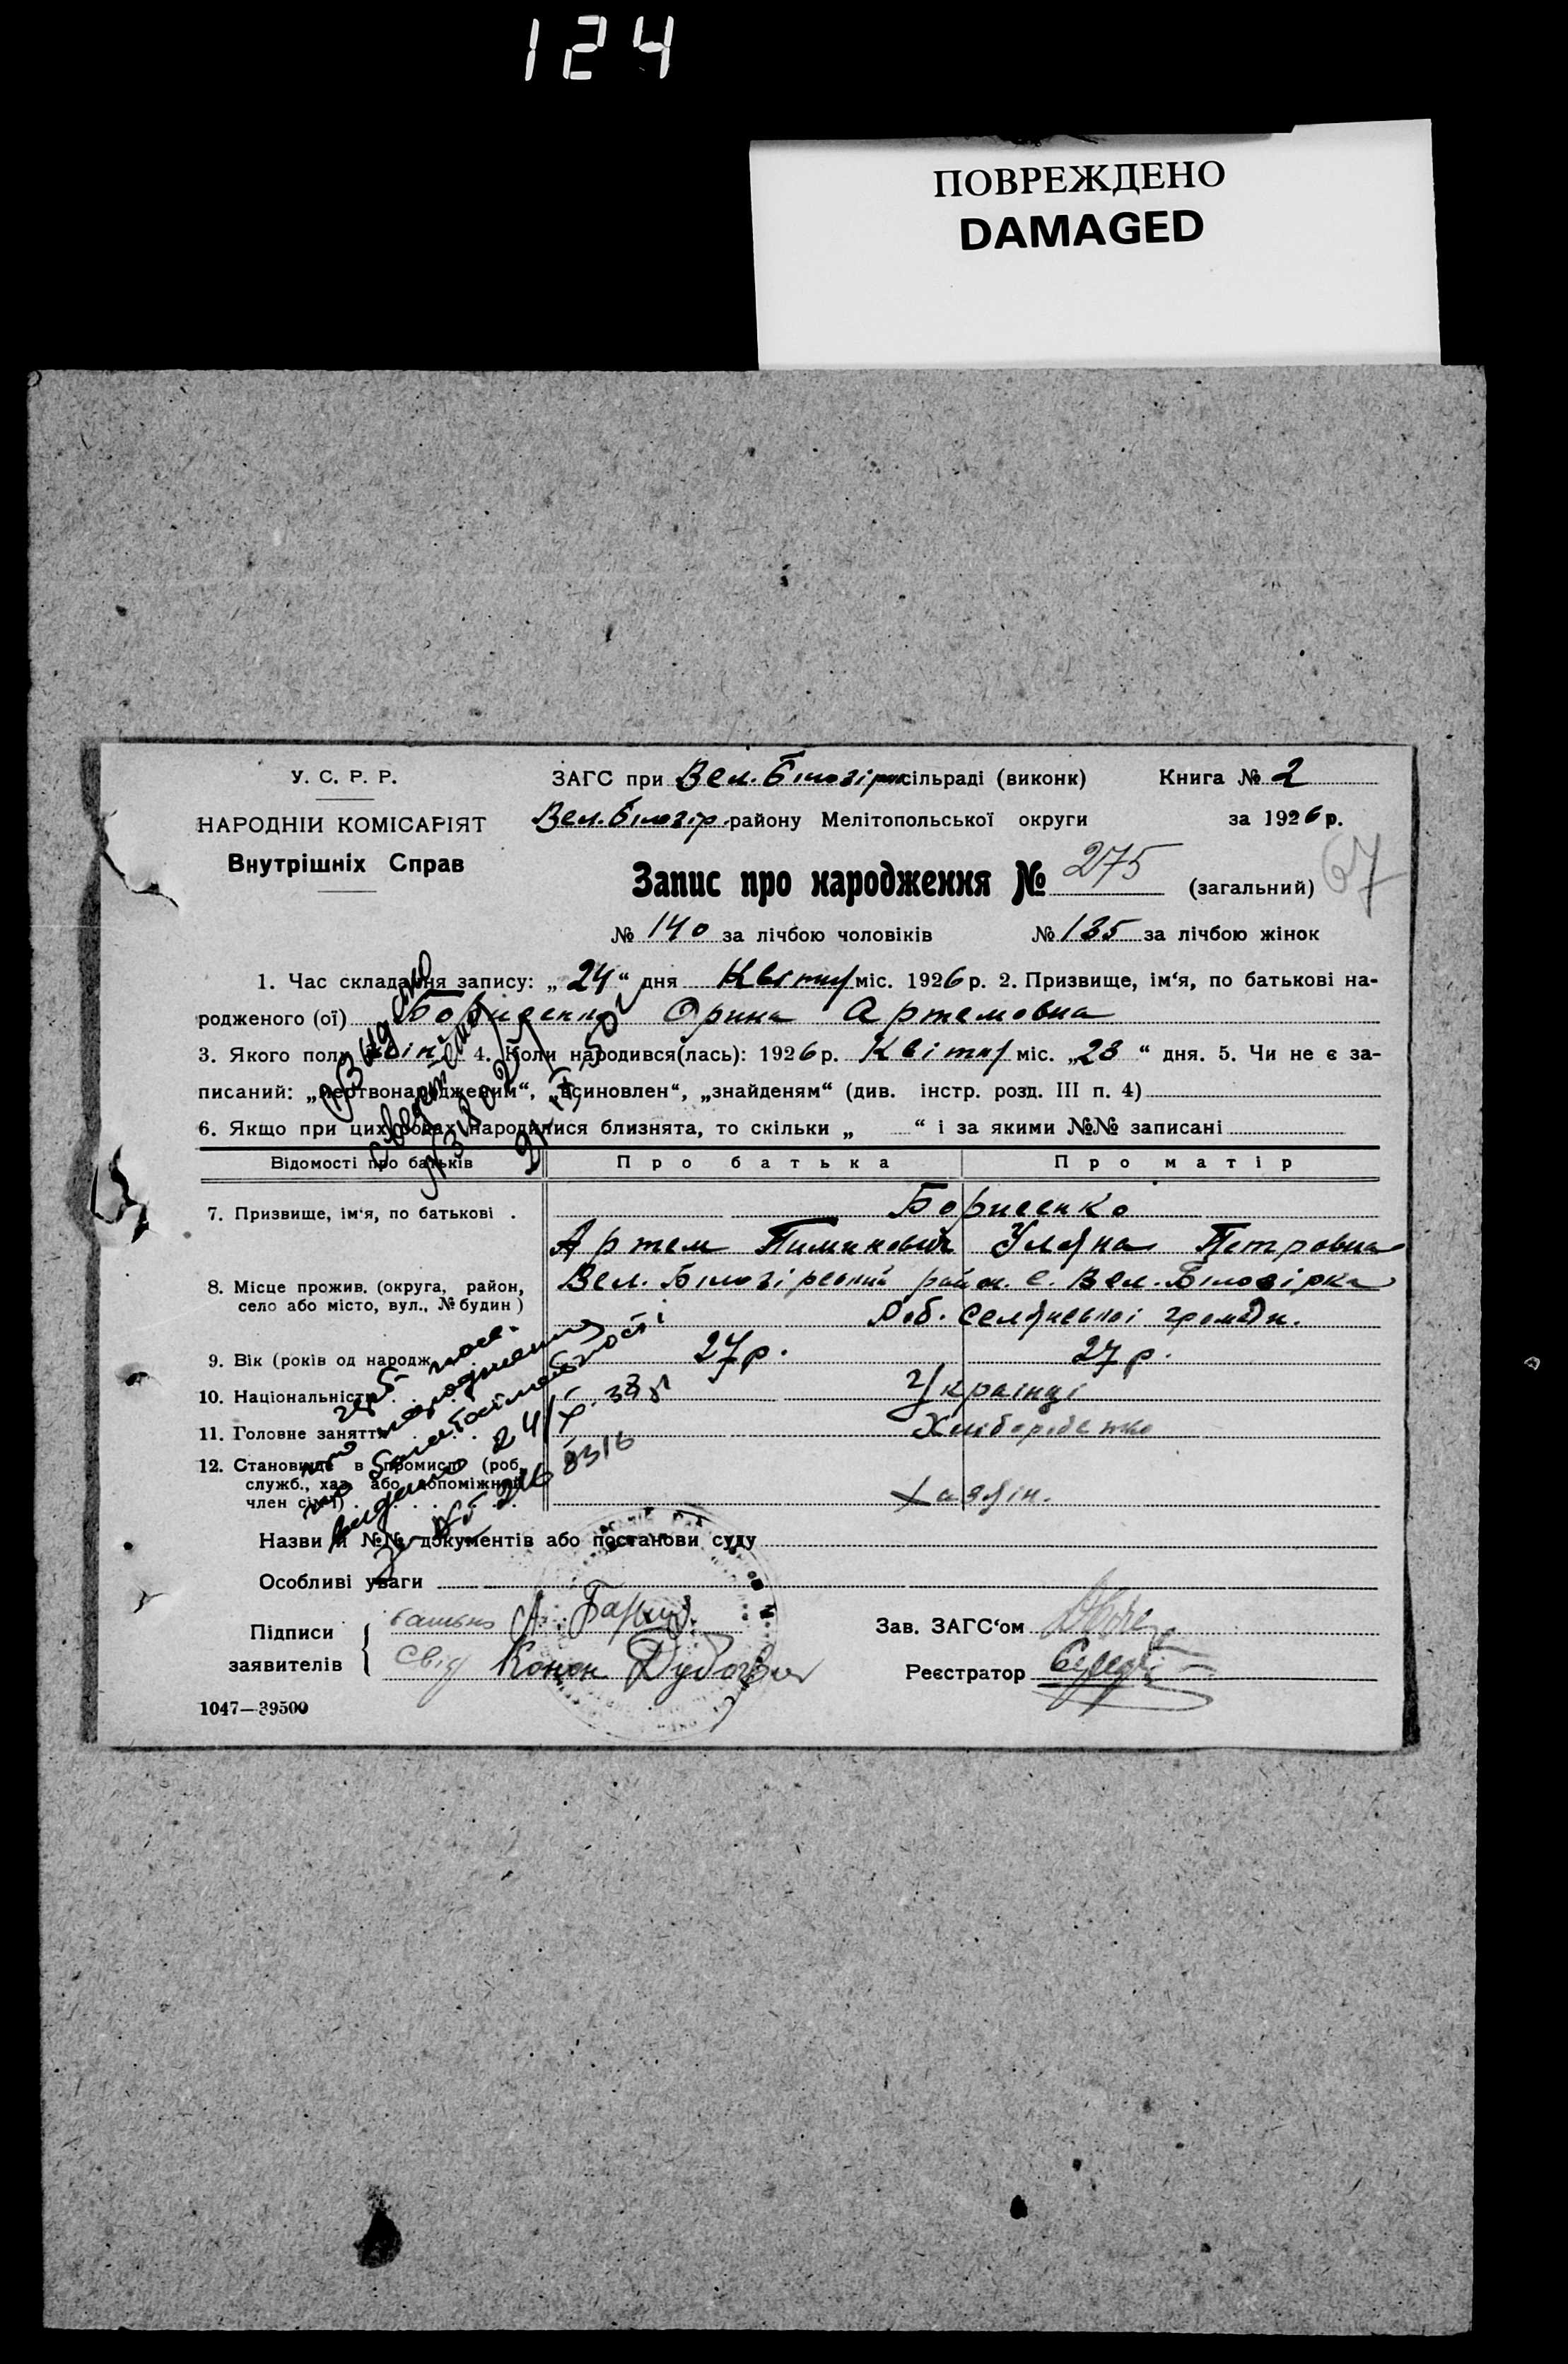 124
ПОВРЕЖДЕНО
DAMAGED
У. С. Р. Р.
ЗАГС при Вел. Білозірс. сільраді (виконк) Книга № 2
НАРОДНІЙ КОМІСАРІЯТ
Вел. Білозір. району Мелітопольської округи за 1926 р.
Внутрішніх Справ
Запис про народження № 275 (загальний) 67
№ 140 за лічбою чоловіків № 135 за лічбою жінок
1. Час складання запису: „ 24 “ дня Квітн міс. 1926 р. 2. Призвище, ім‘я, по батькові на-
родженого (ої) Борисенко Орина Артемовна
3. Якого полу жін. 4. Коли народився(лась): 1926 р. Квітн міс. „ 23 “ дня. 5. Чи не є за-
писаний: „мертвонародженим“, „всиновлен“, „знайденям“ (див. інстр. розд. III п. 4)
6. Якщо при цих родах народилися близнята, то скільки „ “ і за якими №№ записані
Відомості про батьків Про батька Про матір
7. Призвище, ім‘я, по батькові . Борисенко
Артем Пиминович Уляна Петровна
8. Місце прожив. (округа, район, Вел. Білозірський район. с. Вел. Білозірка
село або місто, вул., № будин)
селянської громади.
9. Вік (років од народж 27 р. 27 р.
10. Національність Українці
11. Головне заняття Хліборобство
12. Становище в промислі (роб.,
служб., хаз. або допоміжний
член сім‘ї) хазяїн.
Назви й №№ документів або постанови суду
Особливі уваги
Підписи батько А.
заявителів свід Конон
Зав. ЗАГС‘ом
Реєстратор
1047—39500
видано